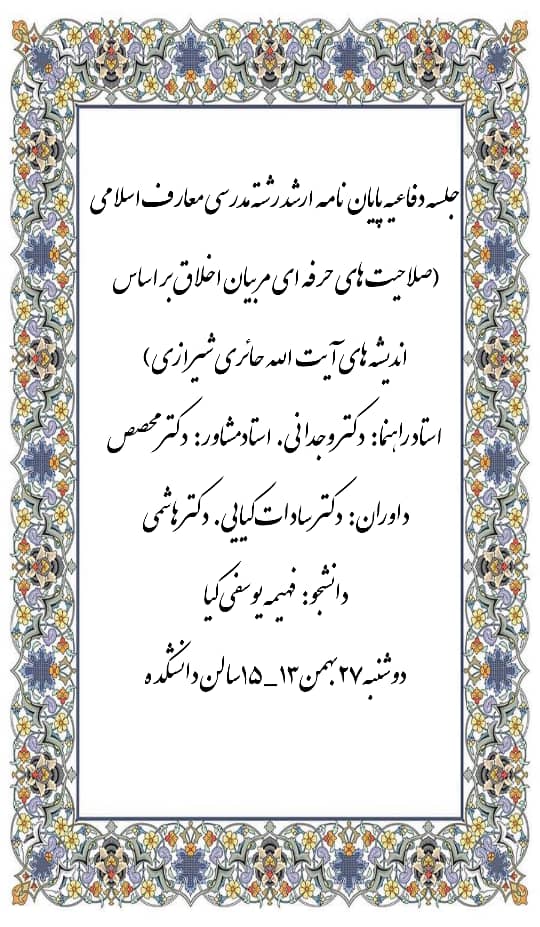 جلسه دفاعیه پایان نامه ارشد رشته مدرسی معارف اسلامی
(صلاحیت های حرفه ای مربیان اخلاق بر اساس
اندیشه های آیت الله حائری شیرازی)
استاد راهنما: دکتر وجدانی. استاد مشاور: دکتر محصص
داوران: دکتر سادات کیایی. دکتر هاشمی
دانشجو: فهیمه یوسفی کیا
دوشنبه ۲۷ بهمن ۱۳_۱۵ سالن دانشکده